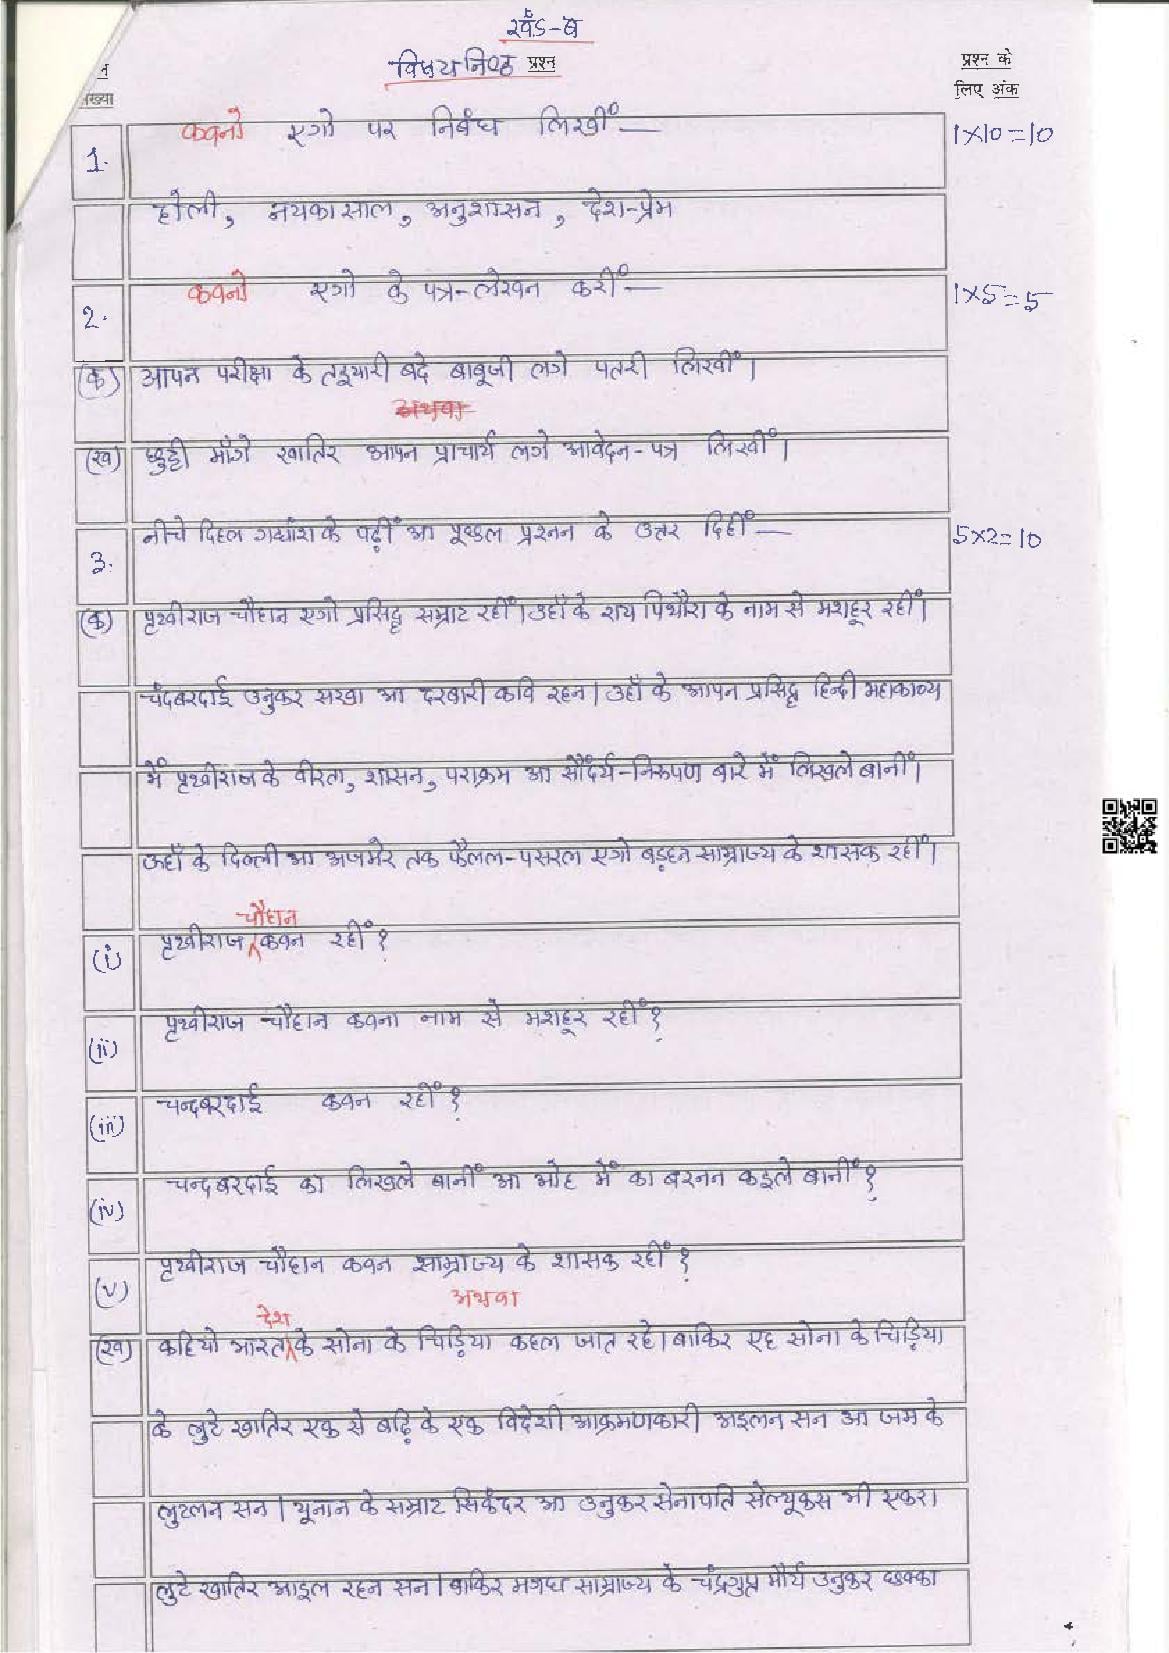 खंड-ब
विषयनिष्ठ प्रश्न
न
संख्या
प्रश्न के
लिए अंक
1. कवनो एगो पर निबंध लिखीं — 1×10=10
होली, नयका साल, अनुशासन, देश-प्रेम
2. कवनो एगो के पत्र-लेखन करीं — 1×5=5
(क) आपन परीक्षा के तइयारी बदे बाबूजी लगे पतरी लिखीं।
अथवा
(ख) छुट्टी माँगे खातिर आपन प्राचार्य लगे आवेदन-पत्र लिखीं।
3. नीचे दिहल गद्यांश के पढ़ीं आ पूछल प्रश्नन के उत्तर दिहीं — 5×2=10
(क) पृथ्वीराज चौहान एगो प्रसिद्ध सम्राट रहीं। उहाँ के राय पिथौरा के नाम से मशहूर रहीं।
चंदबरदाई उनुकर सखा आ दरबारी कवि रहन। उहाँ के आपन प्रसिद्ध हिन्दी महाकाव्य
में पृथ्वीराज के वीरता, शासन, पराक्रम आ सौंदर्य-निरूपण बारे में लिखले बानीं।
ऊहाँ के दिल्ली आ अजमेर तक फैलल-पसरल एगो बड़हन साम्राज्य के शासक रहीं।
(i) पृथ्वीराज चौहान कवन रहीं?
(ii) पृथ्वीराज चौहान कवना नाम से मशहूर रहीं?
(iii) चन्दबरदाई कवन रहीं?
(iv) चन्दबरदाई का लिखले बानीं आ ओह में का बरनन कइले बानीं?
(v) पृथ्वीराज चौहान कवन साम्राज्य के शासक रहीं?
अथवा
(ख) कहियो भारत देश के सोना के चिड़िया कहल जात रहे। बाकिर एह सोना के चिड़िया
के लुटे खातिर एक से बढ़ि के एक विदेशी आक्रमणकारी अइलन सन आ जम के
लुटलन सन। यूनान के सम्राट सिकंदर आ उनुकर सेनापति सेल्यूकस भी एकरा
लुटे खातिर आइल रहन सन। बाकिर मगध साम्राज्य के चंद्रगुप्त मौर्य उनुकर छक्का